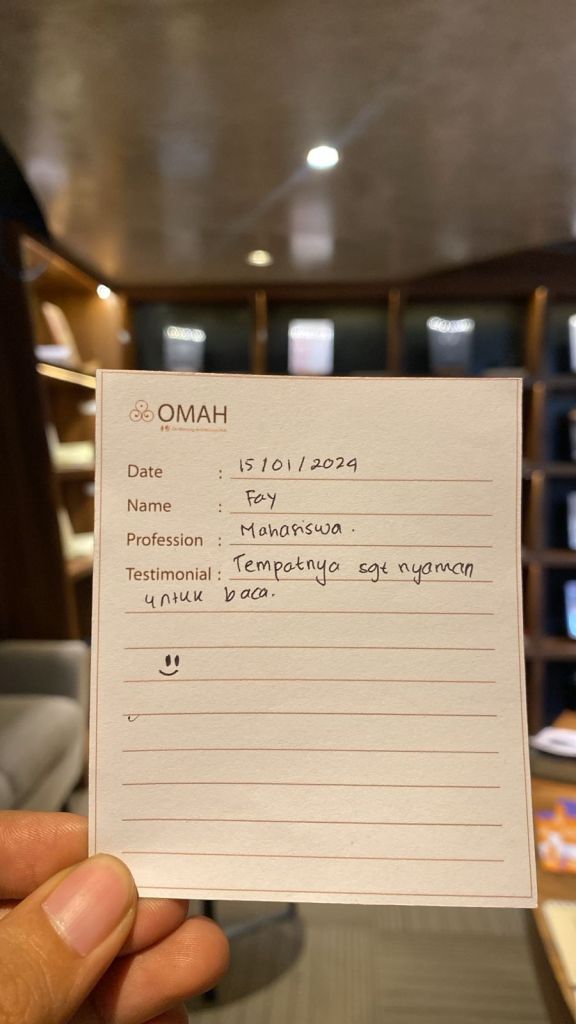 OMAH
Date : 15/01/2024
Name : Fay
Profession : Mahasiswa.
Testimonial : Tempatnya sgt nyaman
untuk baca.